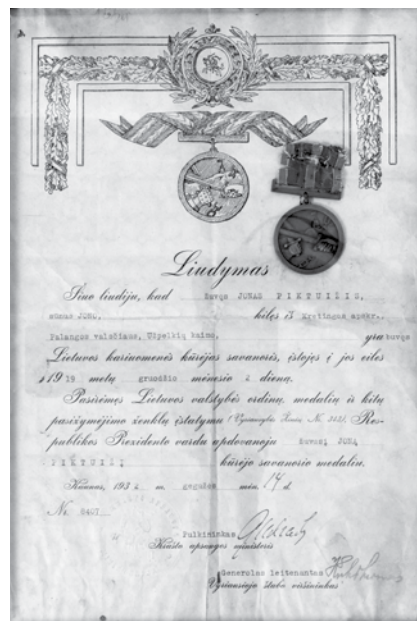 Liudymas
Šiuo liudiju, kad žuvęs JONAS PIKTUIŽIS,
sūnus JONO, kilęs iš Kretingos apskr.
Palangos valsčiaus, Užpelkių kaimo, yra buvęs
Lietuvos kariuomenės kūrėjas savanoris, įstojęs į jos eiles
19 19 metų gruodžio mėnesio 2 dieną.
Pasirėmęs Lietuvos valstybės ordinų, medalių ir kitų
pasižymėjimo ženklų įstatymu (Vyriausybės Žinios Nr.), Res-
publikos Prezidento vardu apdovanoju žuvusį JONĄ
PIKTUIŽĮ kūrėjo savanorio medaliu.
Kaunas, 193 m. gegužės mėn. 14 d.
Nr.
Pulkininkas
Krašto apsaugos ministeris
Generolas leitenantas
Vyriausiojo štabo viršininkas